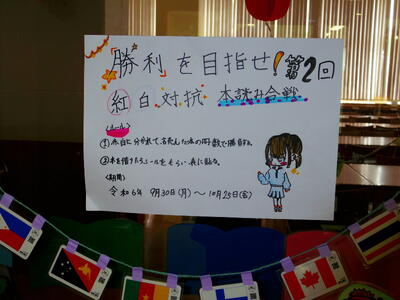 「勝利」を目指せ!第2回
紅白対抗 本読み合戦
<ルール>
①赤白に分かれて、読んだ本の冊数で勝負する。
②本を借りたらシールをもらい表に貼る。
<期間>
令和6年 9月30日(月)〜10月25日(金)